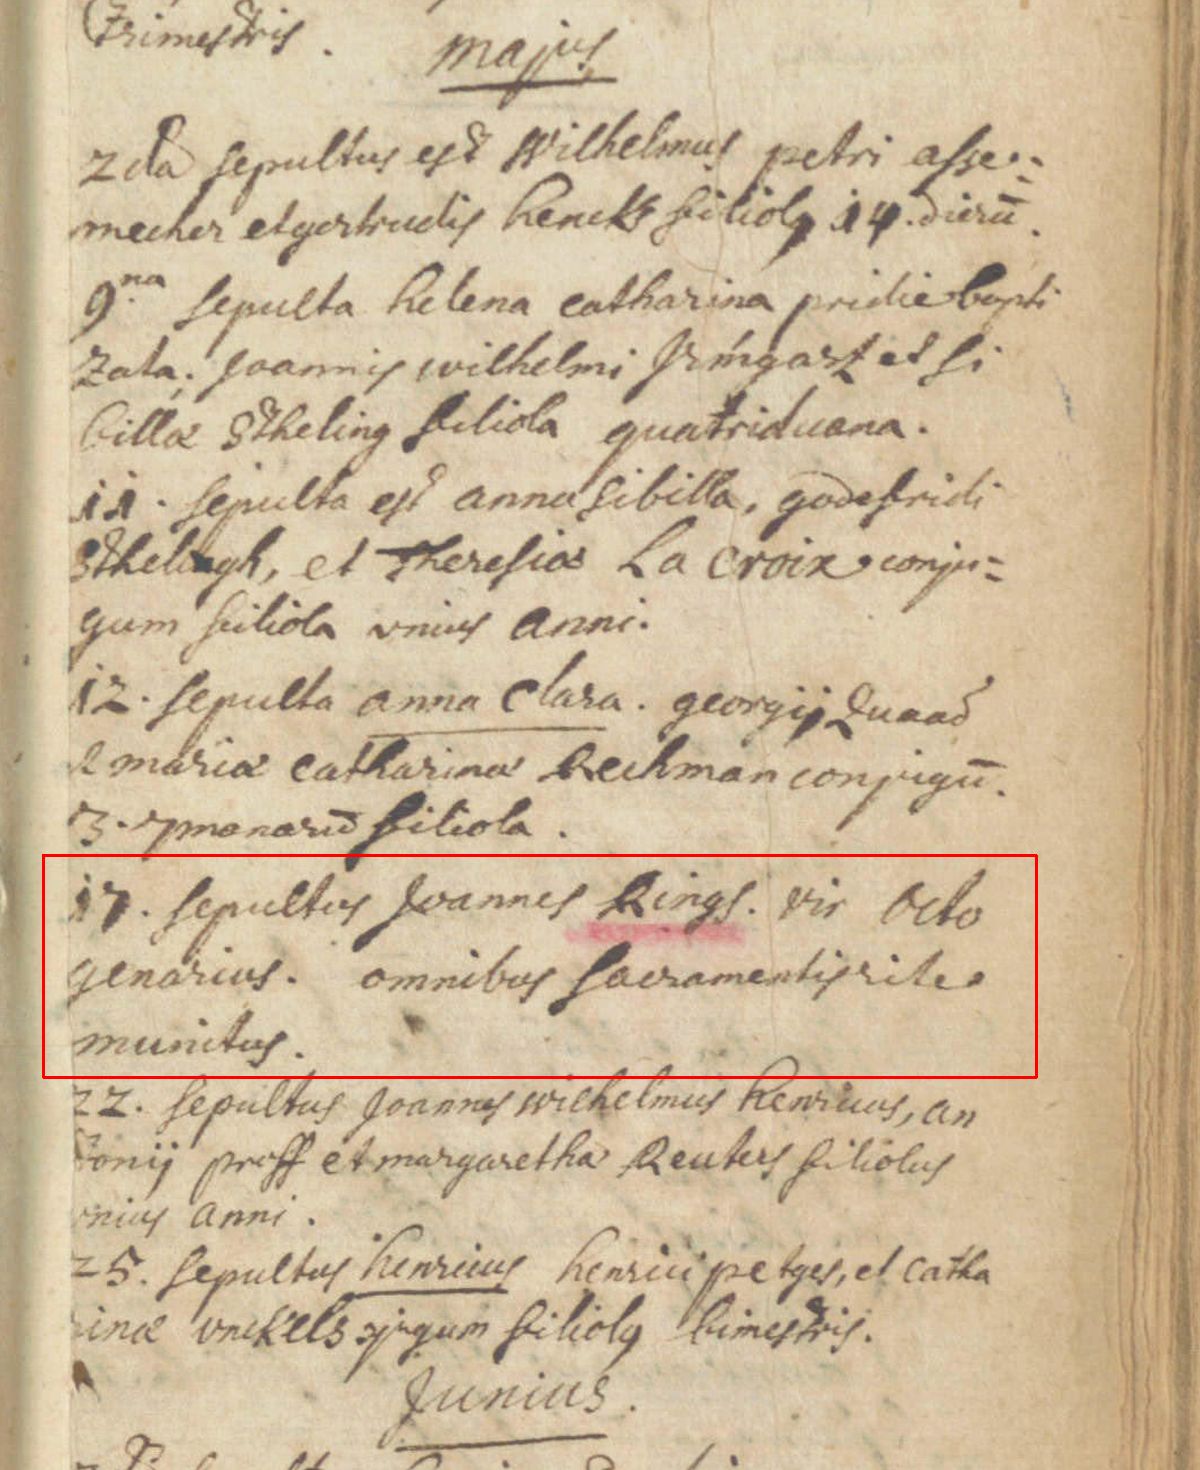 trimestris.
majus
2da sepultus est Wilhelmus petri asse=
mecher et gertrudis hencks filiolq 14. dierū.
9.na sepulta helena catharina pridie bapti
zata. Joannis wilhelmi Irmgart et si
billæ Stheling filiola quatriduana.
11. sepulta est anna sibilla, godefridi
Sthelingh, et Theresiæ La Croix conju=
gum filiola unius anni.
12. sepulta anna clara. georgij Quaad
& mariæ catharinæ Rechman conjugū.
3. 7manarū filiola.
17. sepultus Joannes Rings. vir octo
genarius. omnibus sacramentis rite
munitus.
22. sepultus Joannes wilhelmus henricus, an
tonij proff et margaretha Reuters filiolus
unius anni.
25. sepultus henricus henrici petges, et catha
rinæ unckels ɔjugum filiolq bimestris.
Junius.